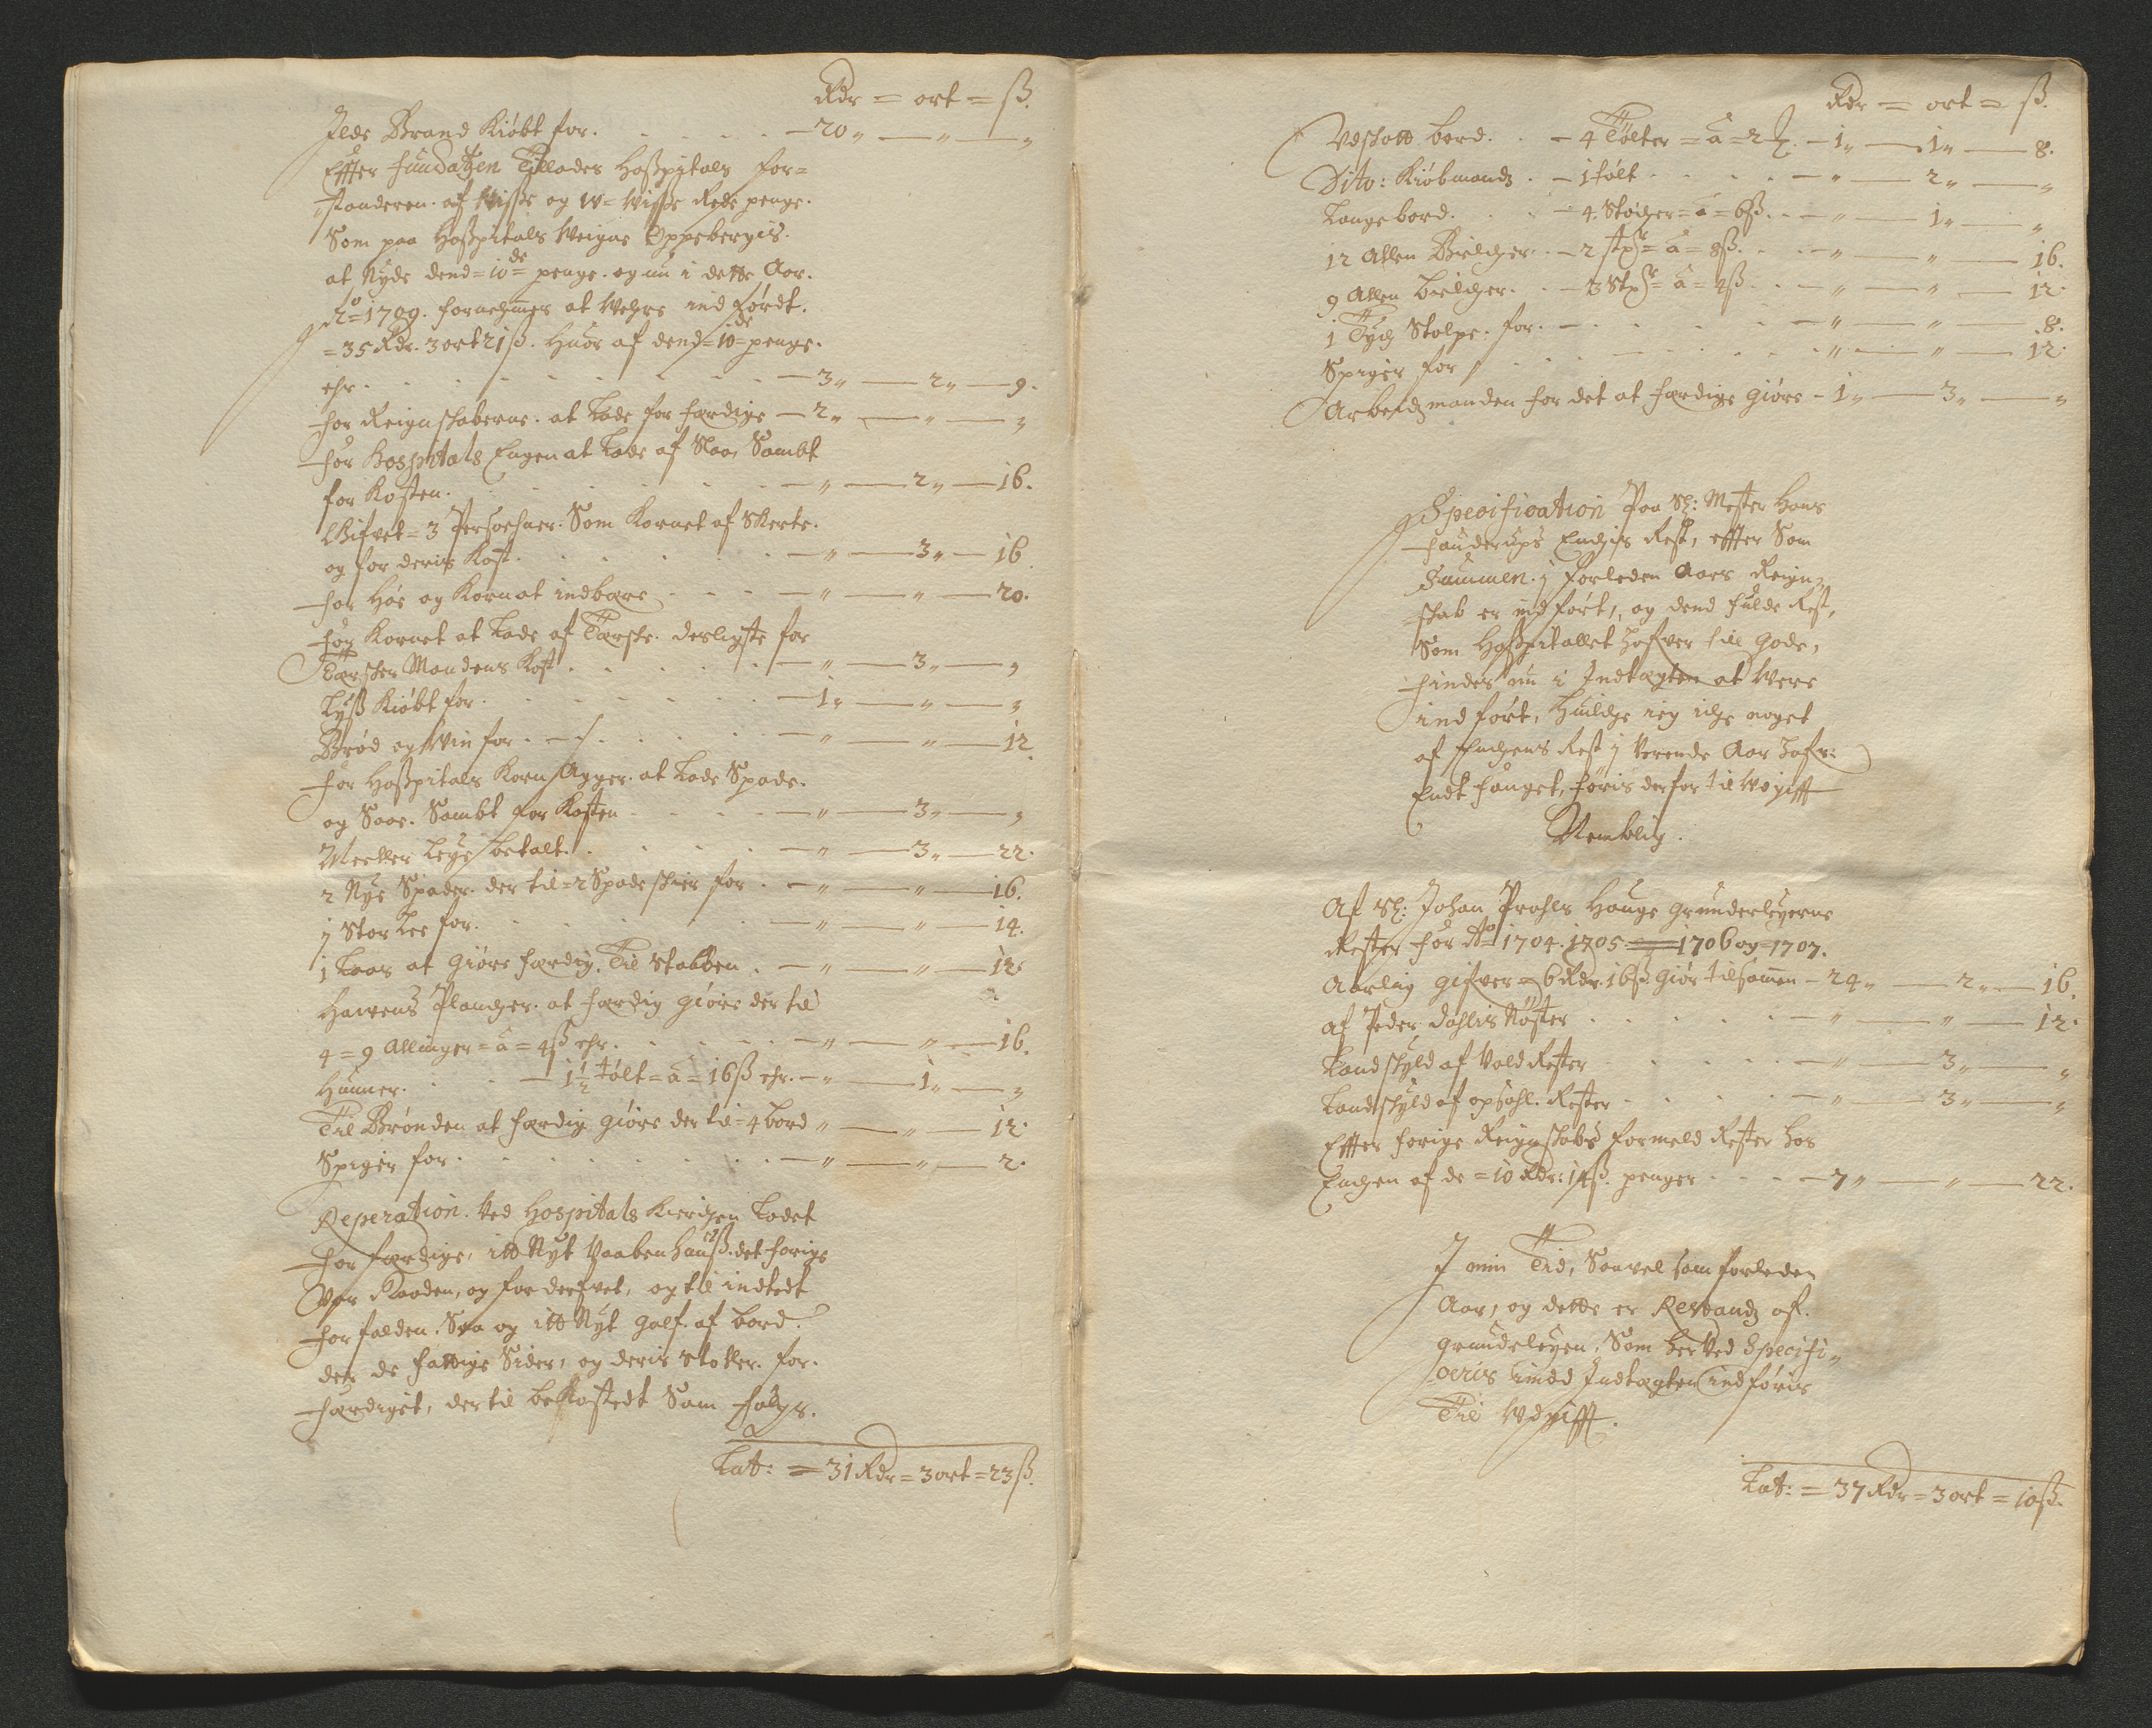 Rdr = ort = ß.
Ilde Brand Kiøbt for . . . . . — 20 „ — „ — „
Effter fundatzen Tillades Hoßpitals for=
standeren af Visse og W=Visse Rede penge.
Som paa Hoßpitals Weigne Oppebergis.
at Nyde dend = 10de = penge. og nu i dette Aar.
Ao = 1709. fornehmes at Wehre ind førdt.
= 35 Rdr. 3 ort 21 ß. Huor af dend = 10de = penge.
ehr . . . . . . — 3 „ — 2 „ — 9.
for Reignskaberne. at Lade for færdige — 2 „ — „ — „
for Hospitals Engen at Lade af Slaae Sambt
for Kosten . . . . . — „ — 2 „ — 16.
Gifvet = 3 Personer. Som Kornet af Skerte.
og for deris Kost . . . . — „ — 3 „ — 16
for Høe og Korn at indbære . . . — „ — „ — 20.
for Kornet at Lade af Tærske. desligeste for
Tærsker Mandens Kost . . . . — „ — 3 „ — „
Lyß Kiøbt for . . . . . — 1 „ — „ — „
Brød og Win for . . . . — „ — „ — 12
for Hoßpitals Korn Agger. at Lade Spade.
og Saae. Sambt for Kosten . . . . — „ — 3 „ — „
Leye betalt . . . . — „ — 3 „ — 22.
2 Nye Spader. der til = 2 Spade skier for . — „ — „ — 16.
j Stor Lee for . . . . . — „ — „ — 14.
1 Laas at Giøre færdig. Til Stabben . — „ — „ — 12
Hawens Plancher. at færdig giøre der til
4 = 9 Allinger = a = 4 ß ehr . . . . — „ — „ — 16.
Hunner . . . — 1½ tølt = a = 16 ß ehr. — „ — 1 „ — „
Til Brønden at færdig giøre der til = 4 bord „ — „ — 12.
Spiger for . . . . . . — „ — „ — 2.
Reperation. Ved Hospitals Kierchen Ladet
for færdige, itt Nyt Vaaben hauß. det forige
Var Raaden, og forderfvet, og til indtedt
forfalden. Saa og itt Nyt Golf. af bord.
der de fattige Sider, og deris Stoller. for.
færdiget, der til bekostedt Som følger.
Lat: = 31 Rdr = 3 ort = 23 ß.
Rdr = ort = ß.
Vdskott bord . . — 4 Tølter = a = — 1 „ — 1 „ — 8.
Dito: Kiøbmandz . — 1 tølt . . . . — „ — 2 „ — „
Lange bord . . . — 4. Stocher = a = 6 ß. . — „ — 1 „ — „
12 Allen Bielcher . — 2 = a = 8 ß . . — „ — „ — 16.
9 Allen bielcher . . — 3 = a = 4 ß . . — „ — „ — 12.
1 Stolpe. for . — . . . . — „ — „ — 8.
Spiger for . . . . . . . — „ — „ — 12.
Arbeidzmanden for det at færdige giøre — 1 „ — 3 „ — „
Specification Paa Sl: Mester Hans
Enchis Rest, effter Som
Summen. j forleden Aars Reign=
skab er ind ført, og dend fulde Rest,
Som Hoßpitallet hafver till gode,
findes nu i Indtægten at Were
ind ført, Huilche ieg iche noget
af Enchens Rest j Verende Aar hafv:
Endt fanget, føris derfor til Wdgifft
Nemblig.
Af Sl: Johan Prahls Hauge grunderleyerne
Rester for Ao 1704. 1705 1706 og = 1707.
Aarlig gifver = 6 Rdr. 16 ß. Giør tilsamen — 24 „ — 2 „ — 16.
af Peder Dahlis Nøster . . . . . — „ — „ — 12.
Landskyld af Vold Rester . . . . — „ — 3 „ — „
Landskyld af opsahl. Rester . . . . — „ — 3 „ — „
Effter forige Reignskabs formeld Rester hos
Enchen af de = 10 Rdr: 14 ß. penger . . . — 7 „ — „ — 22.
I min Tid, Saavel som forleden
Aar, og dette er Restandz af.
grundeleyen, Som her Ved Specifi=
ceris imod Indtægten indføris
Til Wdgifft.
Lat: = 37 Rdr = 3 ort = 10 ß.